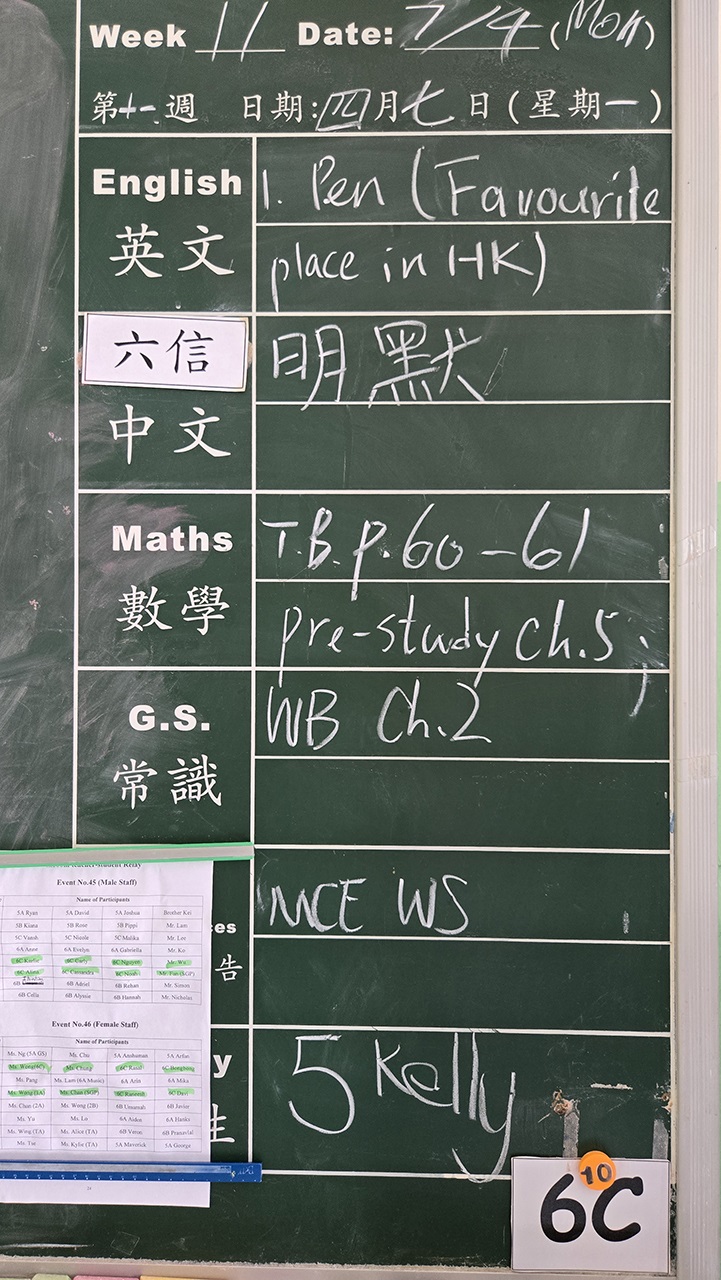 Week 11 Date: 7/4 (Mon)
第十一週 日期:四月七日(星期一)
English 1. Pen (Favourite
英文 place in HK)
六信 明默
中文
Maths T.B.p.60-61
數學 pre-study ch.5;
G.S. WB Ch.2
常識
MCE WS
es
告
y 5 Kelly
生
10
6C
Event No.45 (Male Staff)
Name of Participants
5A Ryan 5A David 5A Joshua Brother Kei
5B Kiana 5B Rose 5B Pippi Mr. Lam
5C Nicole 5C Malika Mr. Lee
6A Anne 6A Evelyn 6A Gabriella Mr. Ko
6C Karlie 6C Carly 6C Nguyen Mr. Wu
6C Cassandra 6C Noah
6B 6B Adriel 6B Rehan Mr. Simon
6B Celia 6B Alyssa 6B Hannah Mr. Nicholas
Event No.46 (Female Staff)
Name of Participants
Ms. Ng (5A GS) Ms. Chu 5A Anshuman 5A Arfan
Ms. Chung
Ms. Pang Ms. Lam (6A Music) 6A Arin 6A Mika
Ms. Wong (1A) Ms. Chan (SGP)
Ms. Chan (2A) Ms. Wong (2B) 6B Umamah 6B Javier
Ms. Yu Ms. Lo 6A Aiden 6A Hanks
Ms. Wing (TA) Ms. Alice (TA)
Ms. Tse Ms. Kylie (TA) 5A Maverick 5A George